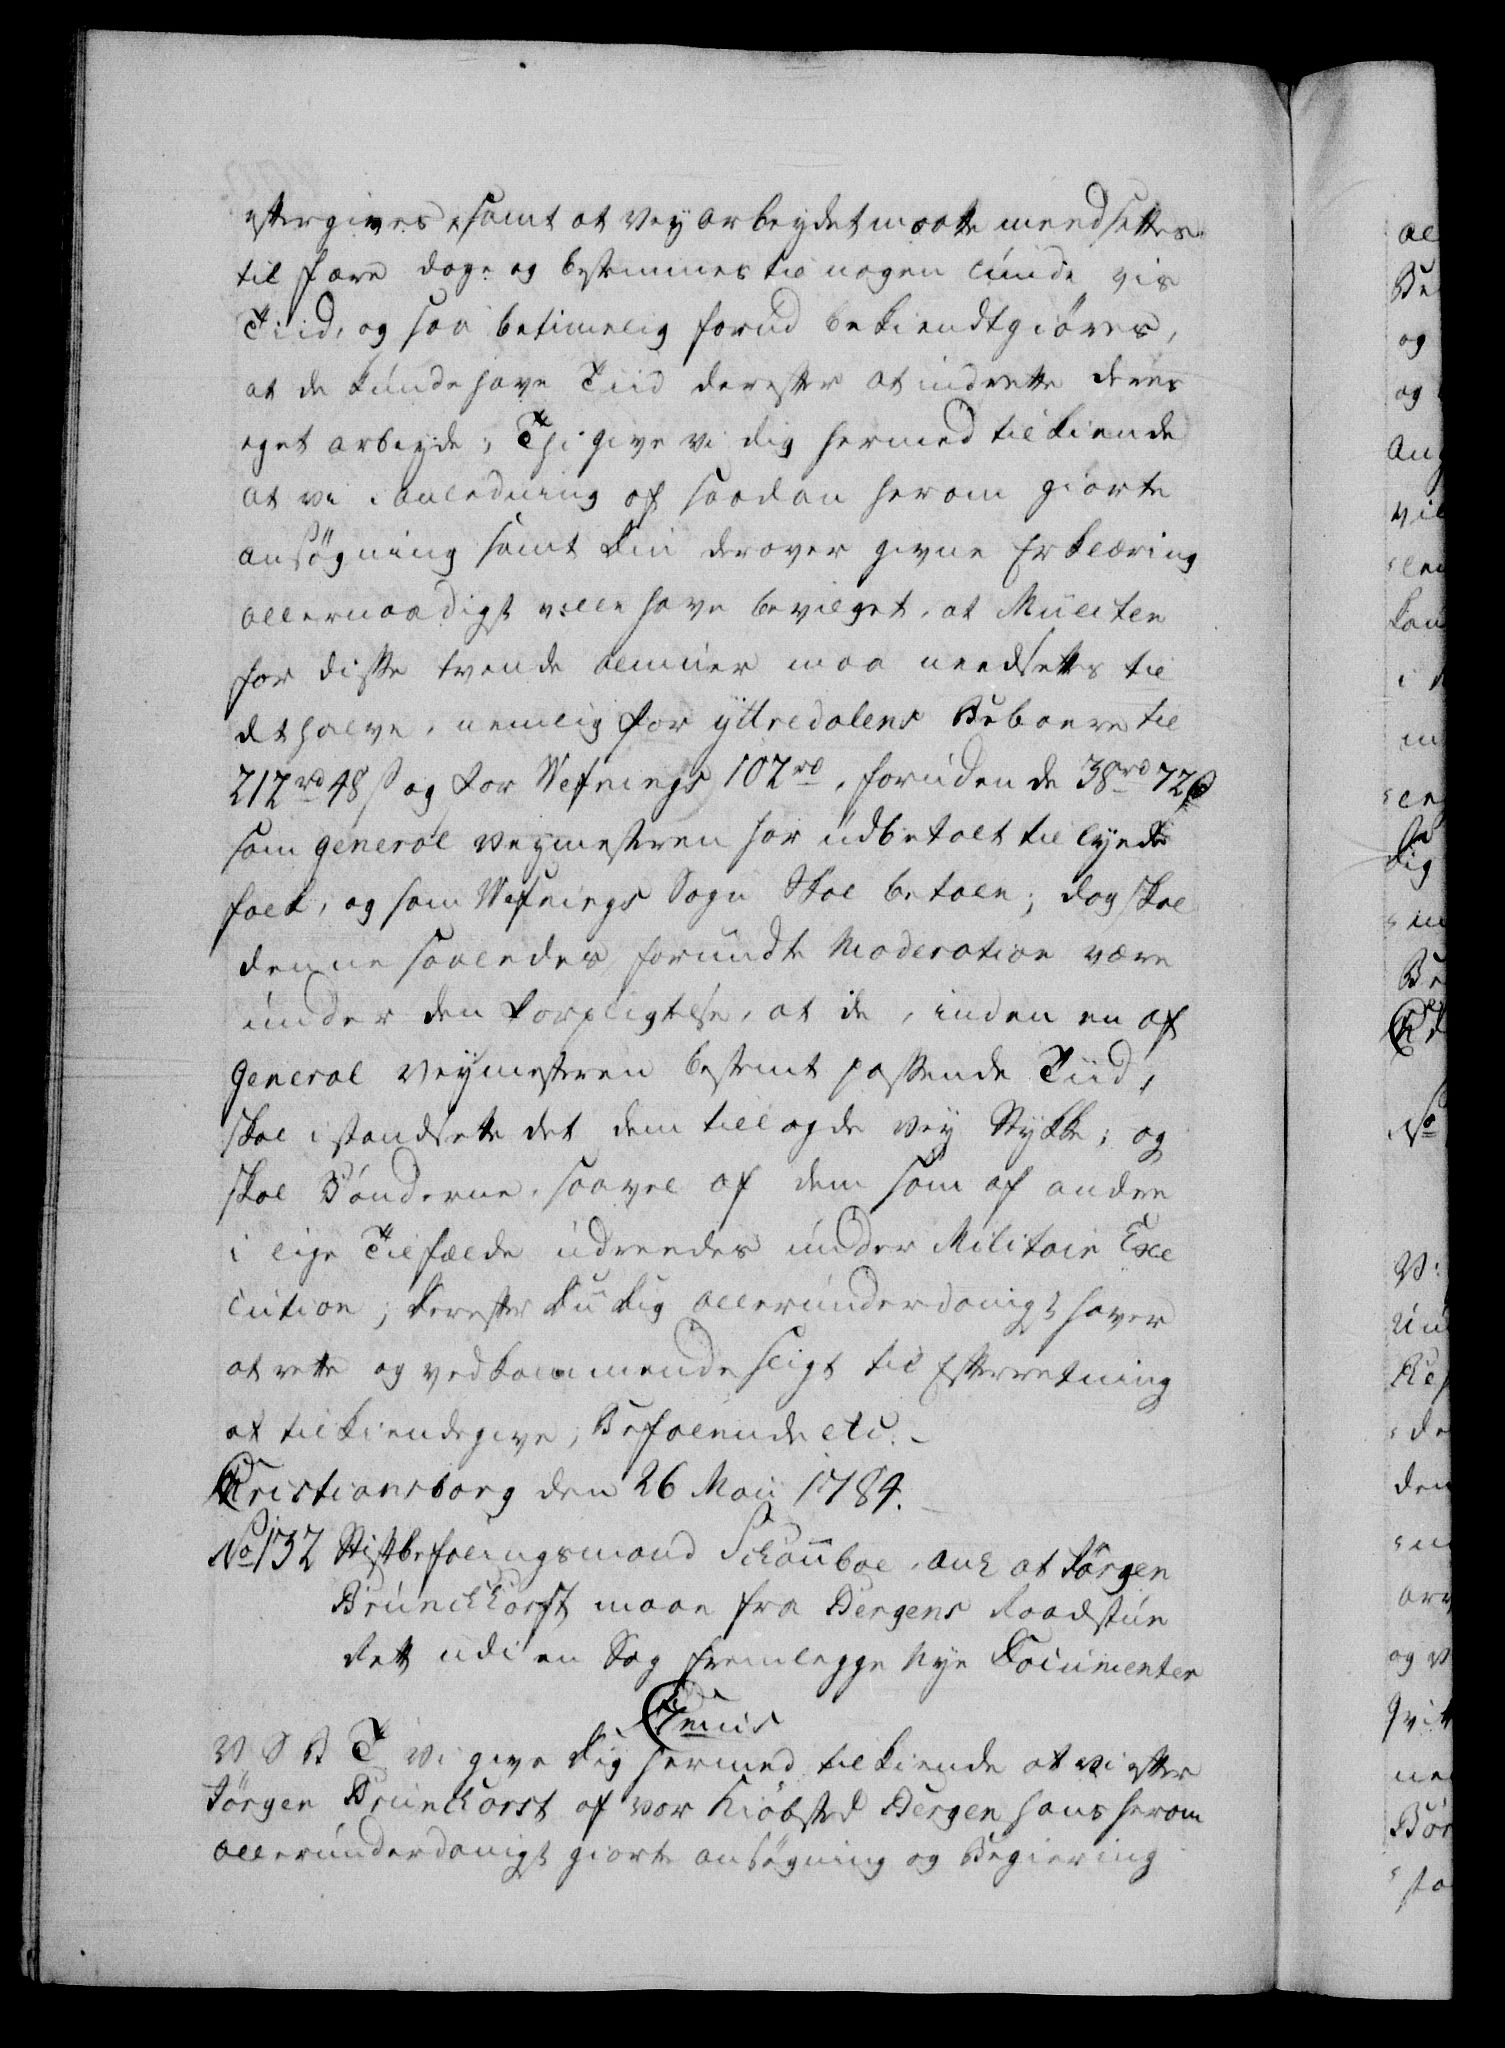 eftergives, samt at Vey arbeydet maatte needsættes
til færre dage og bestemmes til nogen lunde vis
Tiid, og saa betimelig forud bekiendtgiøres,
at de kunde have Tiid derefter at indrette deres
eget arbeyde; Thi give vi dig hermed tilkiende
at vi i anledning af saadan herom giorte
ansøgning samt din derover givne Erklæring
allernaadigst ville have bevilget, at Mulcten
for disse tvende almuer maa needsettes til
det halve, nemlig for yttredalens Beboere til
212 rd 48 s og for Vefsnings 102 rd, foruden de 38 rd 72 s
som General Veymesteren har udbetalt til lejede
folk, og som Vefsnings Sogn skal betale; dog skal
denne saaledes forundte Moderation være
under den Forpligtelse, at de, inden en af
General Veymesteren bestemt passende Tiid,
skal i standsette det dem tillagde Vey Stykke; og
skal Bönderne, saavel af dem som af andre
i lige Tilfælde udreedes under Militair Exe
cution; derefter du dig allerunderdanigst haver
at rette og vedkommende sligt til Efterretning
at tilkiendegive; Befalende etc.
Christiansborg den 26 Maii 1784.
No 132 Stiftbefalingsmand Schouboe, ang at Jörgen
Brunchhorst maae for Bergens Raadstue
Rett udi en Sag fremlegge Nye Documenter
Genvis
V S B T Vi give dig hermed tilkiende at vi efter
Jörgen Brunchorst af vor Kiöbsted Bergen hans herom
allerunderdanigst giorte ansøgning og Begiering